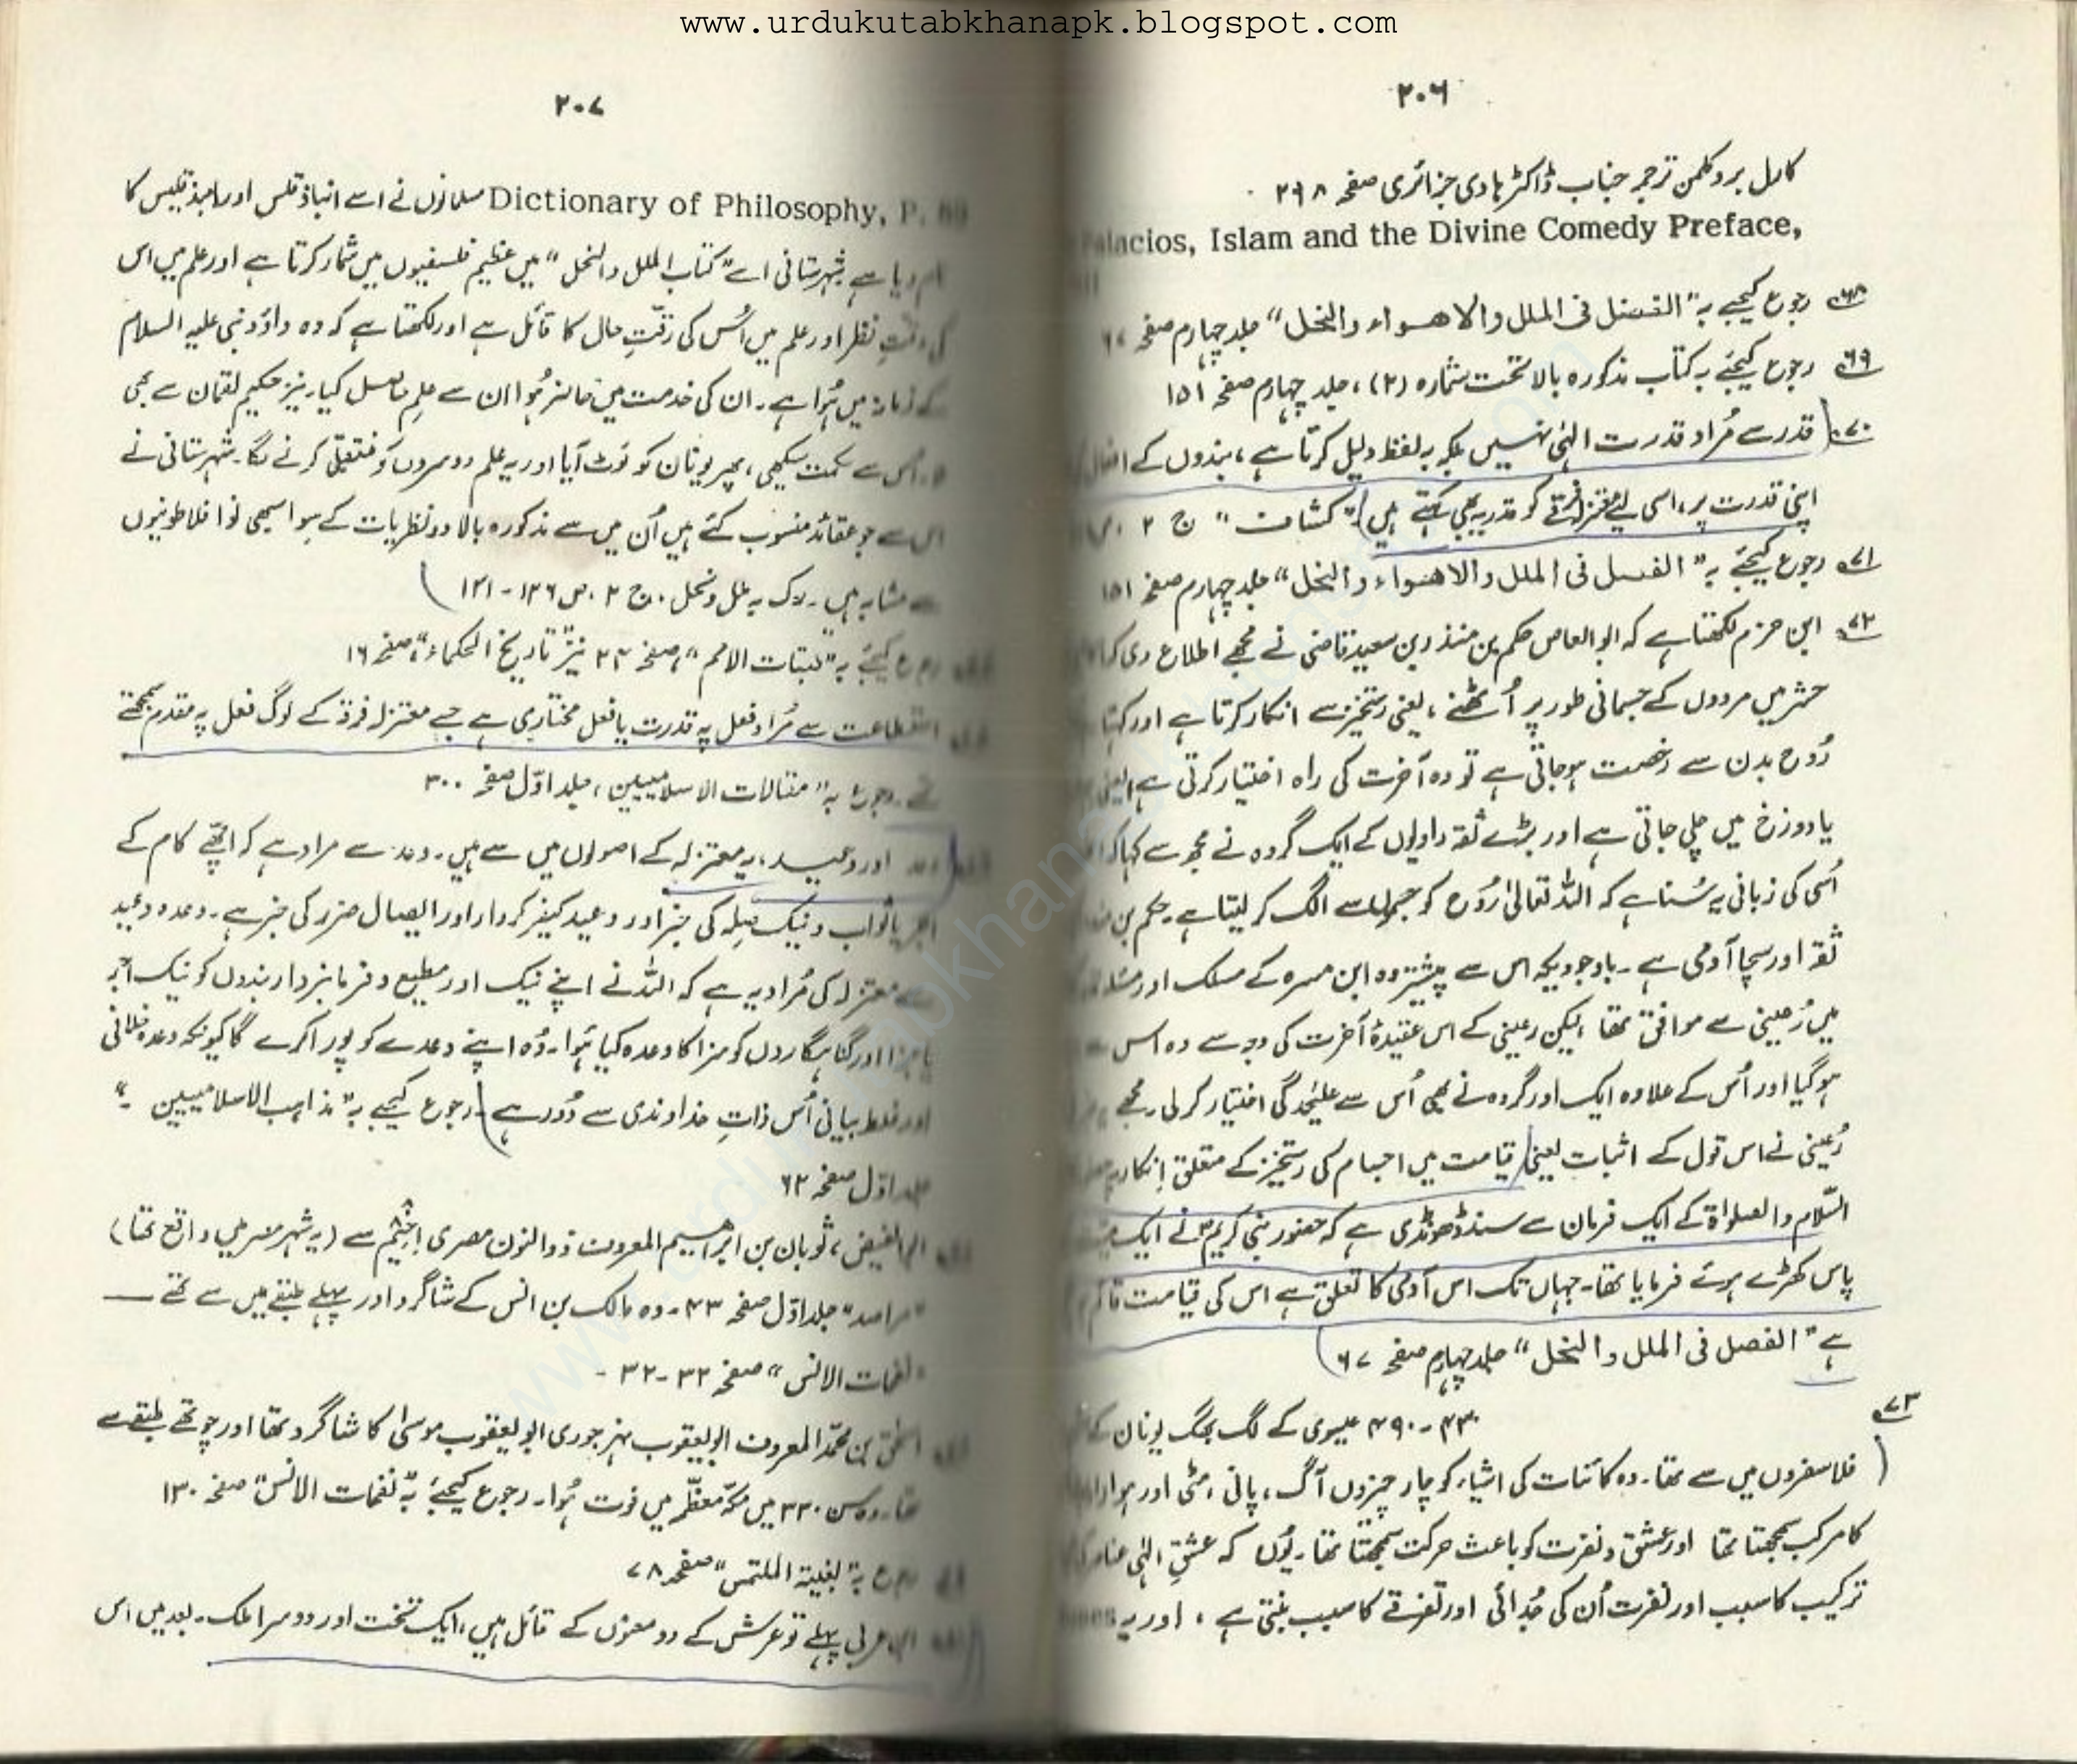 www.urdukutabkhanapk.blogspot.com
۲۰۶
کارل بروکلمن ترجمہ جناب ڈاکٹر ہادی جزائری صفحہ ۲۹۸
Palacios, Islam and the Divine Comedy Preface,
۶۸ رجوع کیجیے بہ "الفصل فی الملل والاھواء والنحل" جلد چہارم صفحہ ۶۷
۶۹ رجوع کیجئے بہ کتاب مذکورہ بالا تحت شمارہ (۲)، جلد چہارم صفحہ ۱۵۱
۷۰ قدر سے مُراد قدرت الہٰی نہیں بلکہ یہ لفظ دلیل کرتا ہے، بندوں کے افعال
اپنی قدرت پر، اسی لیے معتزلہ فرقے کو قدریہ بھی کہتے ہیں "کشاف" ج ۲ ص
۷۱ رجوع کیجئے بہ "الفصل فی الملل والاھواء والنحل" جلد چہارم صفحہ ۱۵۱
۷۲ ابن حزم لکھتا ہے کہ ابوالعاص حکم بن منذر بن سعید قاضی نے مجھے اطلاع دی کہ
حشر میں مردوں کے جسمانی طور پر اُٹھنے، یعنی رستخیز سے انکار کرتا ہے اور کہتا
رُوح بدن سے رخصت ہو جاتی ہے تو وہ آخرت کی راہ اختیار کرتی ہے یعنی
یا دوزخ میں چلی جاتی ہے اور بڑے ثقہ راویوں کے ایک گروہ نے مجھ سے کہا کہ
اُسی کی زبانی یہ سُنا ہے کہ اللہ تعالیٰ رُوح کو جسموں سے الگ کر لیتا ہے۔ حکم بن
ثقہ اور سچا آدمی ہے۔ باوجودیکہ اس سے پیشتر وہ ابن مسرہ کے مسلک اور
میں رُعینی سے موافق تھا، لیکن رعینی کے اس عقیدۂ آخرت کی وجہ سے وہ اس سے
ہو گیا اور اُس کے علاوہ ایک اور گروہ نے بھی اُس سے علیٰحدگی اختیار کر لی۔ مجھے
رُعینی نے اس قول کے اثبات یعنی قیامت میں اجسام کی رستخیز کے متعلق اِنکار پر
السّلام والصلواۃ کے ایک فرمان سے سند ڈھونڈی ہے کہ حضور نبی کریمؐ نے ایک
پاس کھڑے ہوئے فرمایا تھا۔ جہاں تک اس آدمی کا تعلق ہے اس کی قیامت قائم
ہے "الفصل فی الملل والنحل" جلد چہارم صفحہ ۶۷
۷۳ ۴۳۰-۴۹۰ عیسوی کے لگ بھگ یونان کے
فلاسفروں میں سے تھا۔ وہ کائنات کی اشیاء کو چار چیزوں آگ، پانی، مٹی اور ہوا
کا مرکب سمجھتا تھا اور عشق و نفرت کو باعث حرکت سمجھتا تھا۔ یُوں کہ عشقِ الہٰی
ترکیب کا سبب اور نفرت اُن کی جُدائی اور تفرقے کا سبب بنتی ہے، اور یہ
۲۰۷
Dictionary of Philosophy, P. مسلمانوں نے اسے انباذقلس اور ابیذقلیس کا
نام دیا ہے۔ شہرستانی اسے "کتاب الملل والنحل" میں عظیم فلسفیوں میں شمار کرتا ہے اور علم میں اس
کی دقّتِ نظر اور علم میں اُس کی رقّتِ حال کا قائل ہے اور لکھتا ہے کہ وہ داؤد نبی علیہ السلام
کے زمانہ میں ہُوا ہے۔ ان کی خدمت میں حاضر ہُوا ان سے علِم حاصل کیا۔ نیز حکیم لقمان سے بھی
اس سے حکمت سیکھی، پھر یونان کو لَوٹ آیا اور یہ علم دوسروں کو منتقل کرنے لگا۔ شہرستانی نے
اس سے جو عقائد منسوب کئے ہیں اُن میں سے مذکورہ بالا دو نظریات کے سِوا سبھی نوافلاطونیوں
سے مشابہ ہیں۔ رک بہ ملل و نحل۔ ج ۲، ص ۱۲۶-۱۳۱
رجوع کیجئے بہ "طبقات الامم"، صفحہ ۲۲ نیز "تاریخ الحکماء"، صفحہ ۱۶
استطاعت سے مُراد فعل پہ قدرت یا فعل مختاری ہے جسے معتزلہ فرقہ کے لوگ فعل پہ مقدم سمجھتے
تھے۔ رجوع بہ "مقالات الاسلامیین، جلد اوّل صفحہ ۳۰۰
وعد اور وعید، یہ معتزلہ کے اصولوں میں سے ہیں۔ وعد سے مراد ہے کہ اچھّے کام کے
اجر یا ثواب و نیک صِلہ کی خبر اور وعید کیفر کردار اور ایصال ضرر کی خبر ہے۔ وعدہ وعید
سے معتزلہ کی مُراد یہ ہے کہ اللہ نے اپنے نیک اور مطیع و فرمانبردار بندوں کو نیک اجر
یا جزا اور گناہگاروں کو سزا کا وعدہ کیا ہُوا۔ وُہ اپنے وعدے کو پورا کرے گا کیونکہ وعدہ خلافی
اور غلط بیانی اُس ذاتِ خداوندی سے دُور ہے۔ رجوع کیجیے بہ "مذاہب الاسلامیین"۔
جلد اوّل صفحہ ۶۲
ابوالفیض، ثوبان بن ابراھیم المعروف ذوالنون مصری اِخمیم سے (یہ شہر مصر میں واقع تھا)
"مراصد" جلد اوّل صفحہ ۴۳۔ وہ مالک بن انس کے شاگرد اور پہلے طبقے میں سے تھے
"نفحات الانس" صفحہ ۳۲-۳۲-
اسحٰق بن محمّد المعروف ابو یعقوب نہرجوری ابویعقوب موسیٰ کا شاگرد تھا اور چوتھے طبقے سے
تھا۔ وہ سن ۳۳۰ میں مکّہ معظّمہ میں فوت ہُوا۔ رجوع کیجئے بہ "نفحات الانس" صفحہ ۱۳۰
رجوع بہ "بغیتہ الملتمس" صفحہ ۷۸
ابن عربی پہلے تو عرش کے دو معنوں کے قائل ہیں، ایک تخت اور دوسرا ملک۔ بعد میں اس